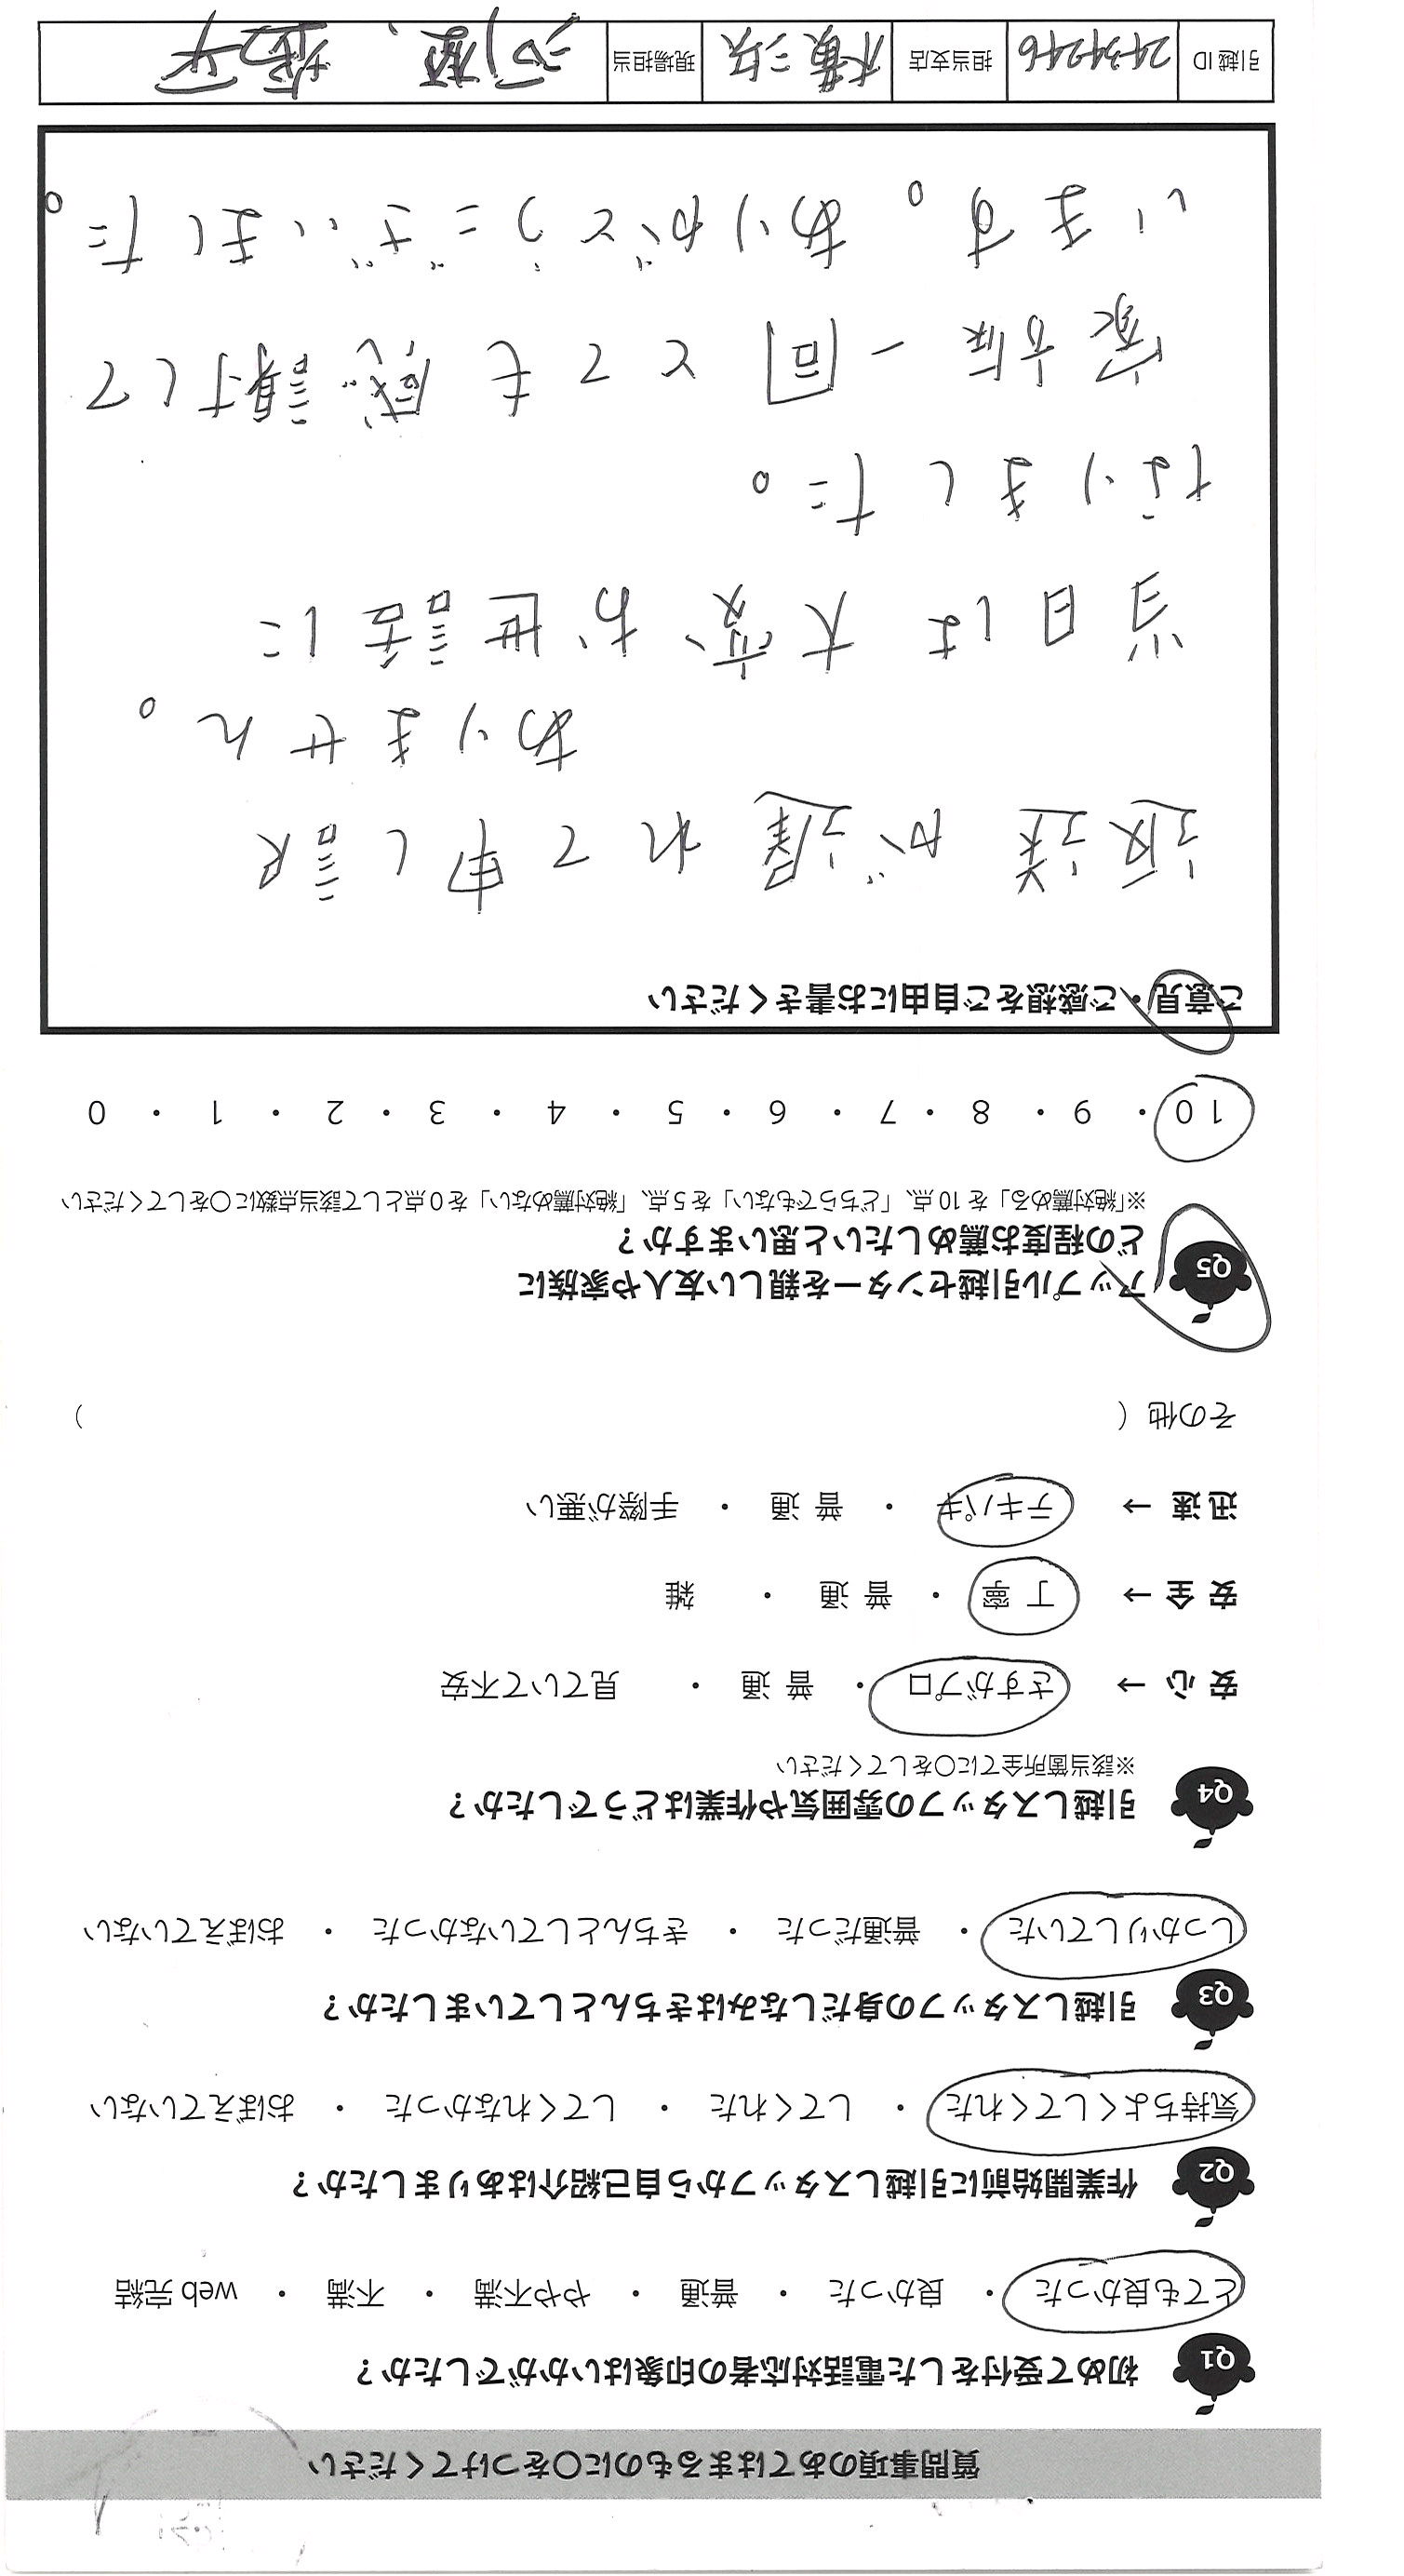 質問事項のあてはまるものに○をつけてください
Q1 初めて受付をした電話対応者の印象はいかがでしたか?
とても良かった ・ 良かった ・ 普通 ・ やや不満 ・ 不満 ・ web完結
Q2 作業開始前に引越しスタッフから自己紹介はありましたか?
気持ちよくしてくれた ・ してくれた ・ してくれなかった ・ おぼえていない
Q3 引越しスタッフの身だしなみはきちんとしていましたか?
しっかりしていた ・ 普通だった ・ きちんとしていなかった ・ おぼえていない
Q4 引越しスタッフの雰囲気や作業はどうでしたか?
※該当箇所全てに○をしてください
安心 → さすがプロ ・ 普通 ・ 見ていて不安
安全 → 丁寧 ・ 普通 ・ 雑
迅速 → テキパキ ・ 普通 ・ 手際が悪い
その他 ( )
Q5 アップル引越センターを親しい友人や家族に
どの程度お薦めしたいと思いますか?
※「絶対薦める」を10点、「どちらでもない」を5点、「絶対薦めない」を0点として該当点数に○をしてください
10 ・ 9 ・ 8 ・ 7 ・ 6 ・ 5 ・ 4 ・ 3 ・ 2 ・ 1 ・ 0
ご意見・ご感想をご自由にお書きください
返送が遅れて申し訳
ありません。
当日は大変お世話に
なりました。
家族一同とても感謝して
います。ありがとうございました。
引越ID 2434246 担当支店 現場担当